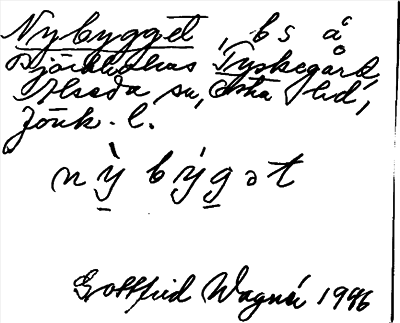 Nybygget, bs å
Björkholms Tyskegård,
Alseda sn, Östra hd,
Jönk. l.
nỳ býgət
Gottfrid Wagnér 1946